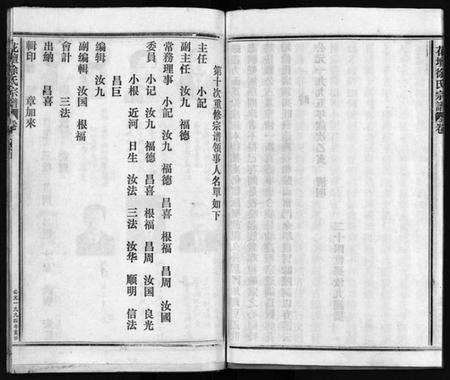 花壇徐氏宗譜
第十次重修宗谱领事人名單如下
主任 小記
副主任 汝九 福德
常務理事 小記 汝九 福德 昌喜 根福 昌周 汝國
委員 小记 汝九 福德 昌喜 根福 昌周 汝国 良光
小根 近河 日生 汝法 三法 汝华 顺明 信法
昌巨
编辑 汝九
副编輯 汝国 根福
會計 三法
出纳 昌喜
輯印 章加来
花壇徐氏宗譜